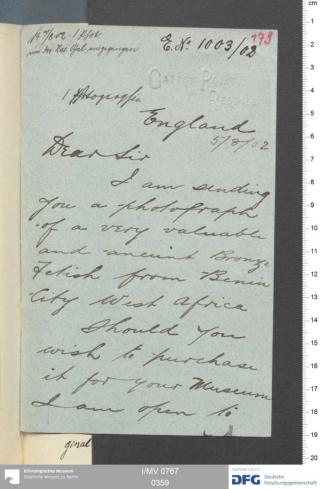 E. No 1003/02
173
1 Photographie
England
5/8/02
Dear Sir
I am sending
you a photograph
of a very valuable
and ancient Bronze
Fetish from Benin
City West Africa
Should you
wish to purchase
it for your Museum
I am open to
cm
1
2
3
4
5
6
7
8
9
10
11
12
13
14
15
16
17
18
19
20
Ethnologisches Museum
Staatliche Museen zu Berlin
I/MV 0767
0359
DFG
Deutsche
Forschungsgemeinschaft